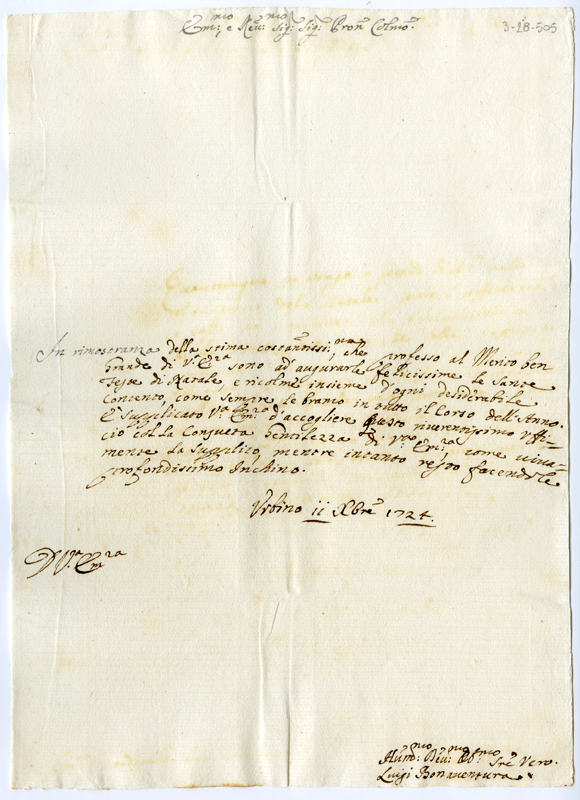 3-28-505
Em:mo e Rev:mo Sig: Sig: Pron Colmo.
In rimostranza della stima costantissi:ma, che professo al Merito ben
grande di V:ra Em:za sono ad' augurarle felicissime le Sante
Feste di Natale, e ricolme insieme d'ogni desiderabile
Contento, come sempre le bramo in tutto il Corso dell'Anno.
E supplicato V:ra Em:za d'accogliere questo riverentissimo uffi=
cio colla Consueta Gentilezza di V:ra Em:za, come viva=
mente La Supplico, mentre intanto resto facendole
profondissimo Inchino.
Urbino 11 Xbre 1724.
D V:ra Em:za
Hum:mo Dev:mo Ob:mo Sre Vero.
Luigi Bonaventura